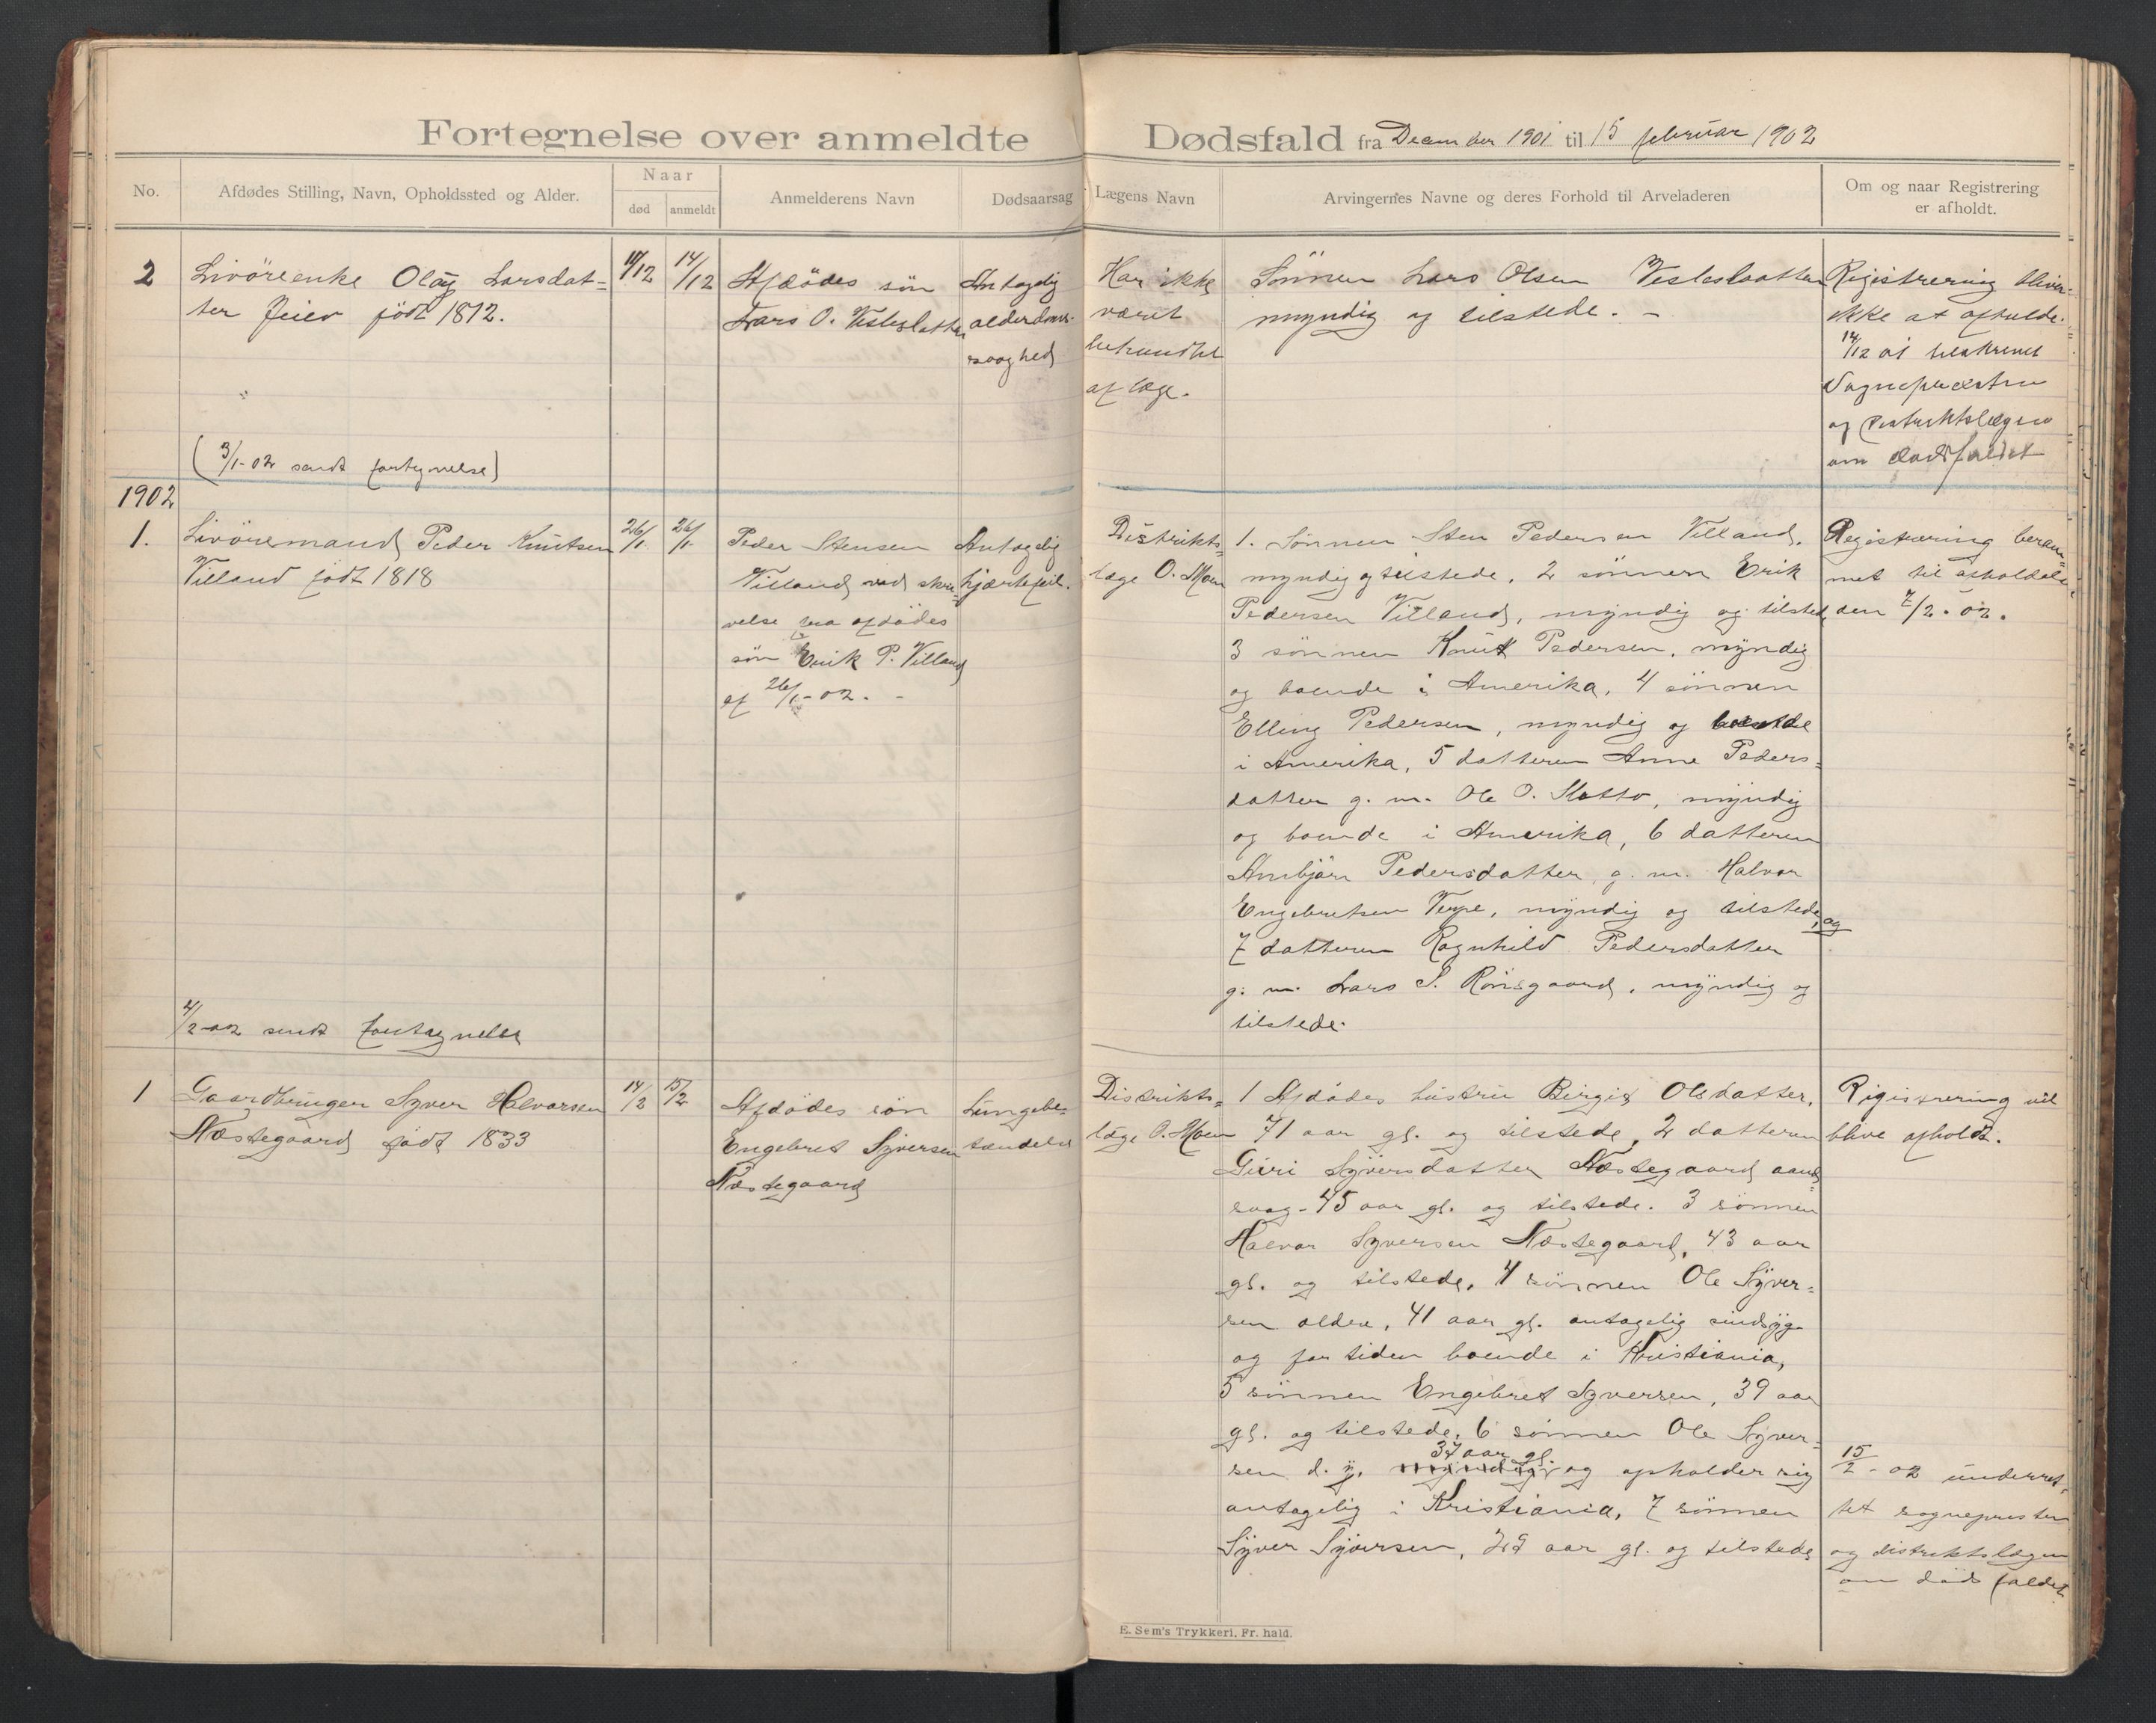 Fortegnelse over anmeldte Dødsfald fra Decem ber 1901 til 15 februar 1902
No.
Afdødes Stilling, Navn, Opholdssted og Alder.
Naar
død
anmeldt
Anmelderens Navn
Dødsaarsag
Lægens Navn
Arvingernes Navne og deres Forhold til Arveladeren
Om og naar Registrering
er afholdt.
2
Livöreenke Olâg Larsdat=
ter Jeilo födt 1812.
(3/1-02 sendt fortegnelse)
14/12
Afdödes sön
Lars O. Vesleslatten
Antagelig
alderdoms-
svaghed
Har ikke
været
behandlet
af læge.
Sönnen Lars Olsen Vesleslaatten
myndig og tilstede. -
Registrering bliver
ikke at afholde.
14/12 01 tilskrevet
Sognepræsten
og Distriktslægen
om dödsfaldet
1902
1.
Livöremand Peder Knutsen
Villand födt 1818
4/2-02 sendt fortegnelse
26/1
26/1
Peder Stensen
Villand ved skri=
velse fra afdödes
sön Erik P. Villand
af 26/1-02. -
Antagelig
hjærtefeil.
Distrikts=
læge O. Moen
1. Sönnen Sten Pedersen Villand,
myndig og tilstede, 2 sönnen Erik
Pedersen Villand, myndig og tilstede,
3 sönnen Knut Pedersen, myndig
og boende i Amerika, 4 sönnen
Elling Pedersen, myndig og boende
i Amerika, 5 datteren Anne Peders=
datter g. m. Ole O. Slatto, myndig
og boende i Amerika, 6 datteren
Ambjör Pedersdatter g. m. Halvor
Engebretsen Terpe, myndig og tilstede, og
7 datteren Ragnhild Pedersdatter
g. m. Lars S. Rönsgaard, myndig og
tilstede.
Registrering beram=
met til afholdelse
den 7/2-02.
1
Gaardbruger Syver Halvorsen
Næstegaard födt 1833
14/2
15/2
Afdödes sön
Engebret Syversen
Næstegaard
Lungebe=
tændelse
Distrikts=
læge O. Moen
1 Afdödes hustru Birgit Olsdatter,
71 aar gl. og tilstede, 2 datteren
Guri Syversdatter Næstegaard aand=
svag - 45 aar gl. og tilstede. 3 sönnen
Halvor Syversen Næstegaard, 43 aar
gl. og tilstede, 4 sönnen Ole Syver=
sen eldre, 41 aar gl. antagelig sindsyg
og for tiden boende i Kristiania,
5 sönnen Engebret Syversen, 39 aar
gl. og tilstede, 6 sönnen Ole Syver=
37 aar gl.
sen d. y. myndig og opholder sig
antagelig i Kristiania, 7 sönnen
Syver Syversen, 29 aar gl. og tilstede
Registrering vil
blive afholdt.
15/2-02 underret=
tet sognepresten
og distriktslægen
om dödsfaldet
E. Sem's Trykkeri, Fr. hald.